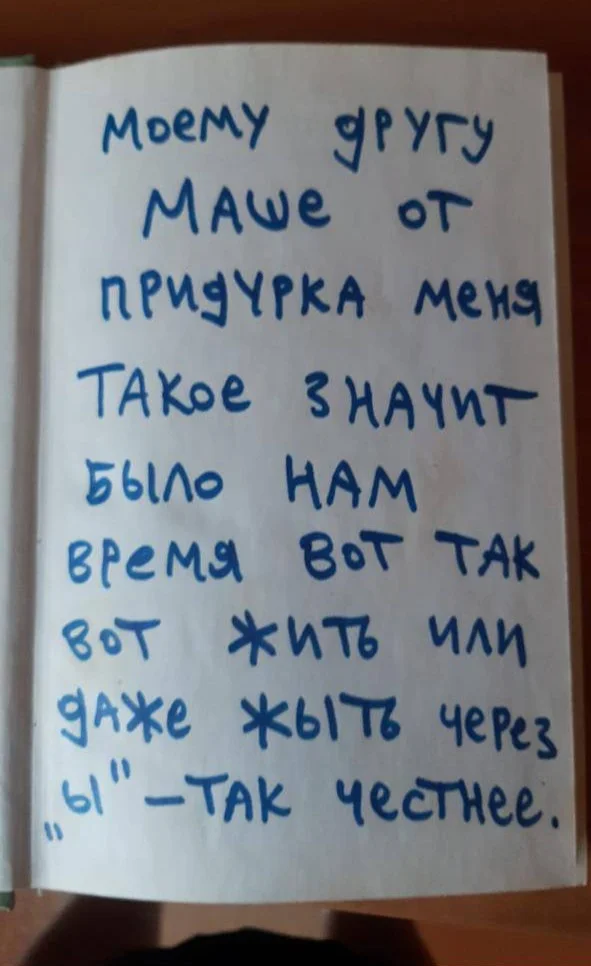 моему другу
Маше от
придурка меня
Такое значит
было нам
время вот так
вот жить или
даже жыть через
„ы" – так честнее.